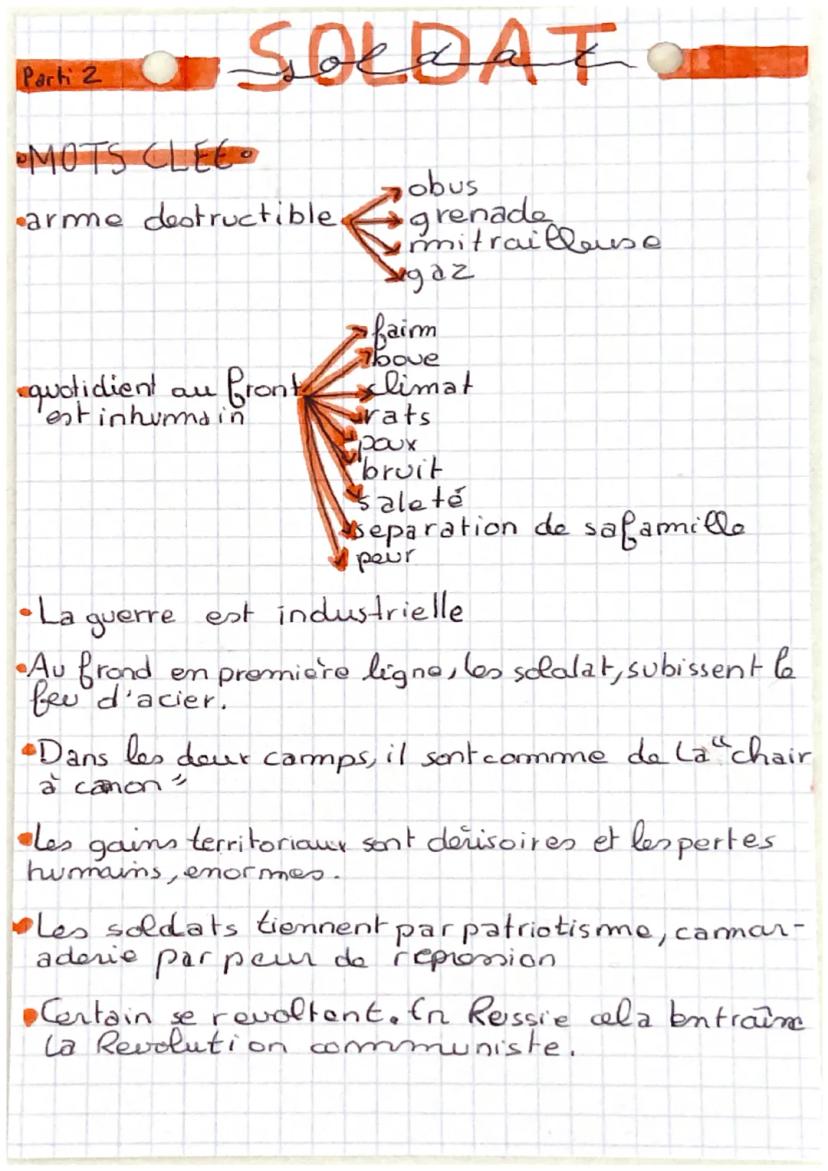 Parti 2
SOLDAT
soldat
MOTS CLEE
arme destructible
obus
grenade
mitrailleuse
gaz
quotidient au front
est inhumain
faim
boue
climat
rats
poux
bruit
saleté
separation de sa famille
peur
La guerre est industrielle
Au frond en première ligne, les soldat, subissent le
feu d'acier.
Dans les deux camps, il sont comme de la "chair
à canon"
Les gains territoriaux sont dérisoires et les pertes
humains, enormes.
Les soldats tiennent par patriotisme, camar-
aderie par peur de repression
Certain se revoltent. En Russie cela entraîne
la Revolution communiste.